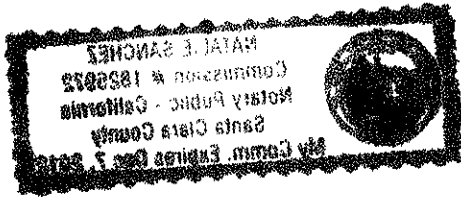 NATALIE E. SANCHEZ
Commission # 1825922
Notary Public - California
Santa Clara County
My Comm. Expires Dec 7, 2012